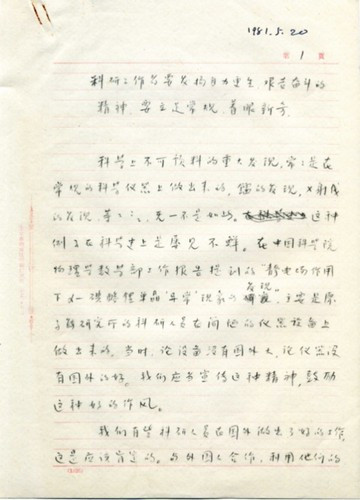 1981.5.20
第 1 页
科研工作者要发扬自力更生 艰苦奋斗的
精神，要立足常规，着眼新奇
科学上不可预料的重大发现，常常是在
常规的科学仪器上做出来的，镭的发现，X射线
的发现，等等，无一不是如此。这种
例子在科学史上是屡见不鲜。在中国科学院
物理学数学部工作报告提到的"静电场作用
发现。
下α-碘酸锂单晶"异常"现象的，主要是原
子能研究所的科研人员在简陋的仪器设备上
做出来的。当时，论设备没有国外大，论仪器没
有国外的好。我们应当宣传这种精神，鼓励
这种好的作风。
我们有些科研人员在国外做出了好的工作，
这是应该肯定的。与外国人合作，利用他们的